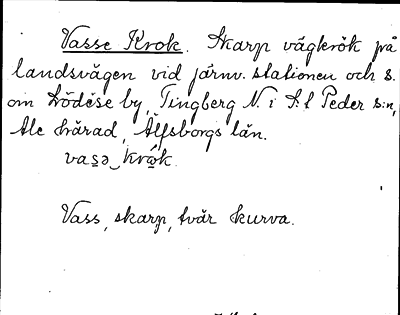 Vasse Krok. Skarp vägkrök på
landsvägen vid järnv. stationen och s.
om Lödöse by, Tingberg N. i S:t Peder s:n,
Ale härad, Älfsborgs län.
vasə krok.
Vass, skarp, tvär kurva.